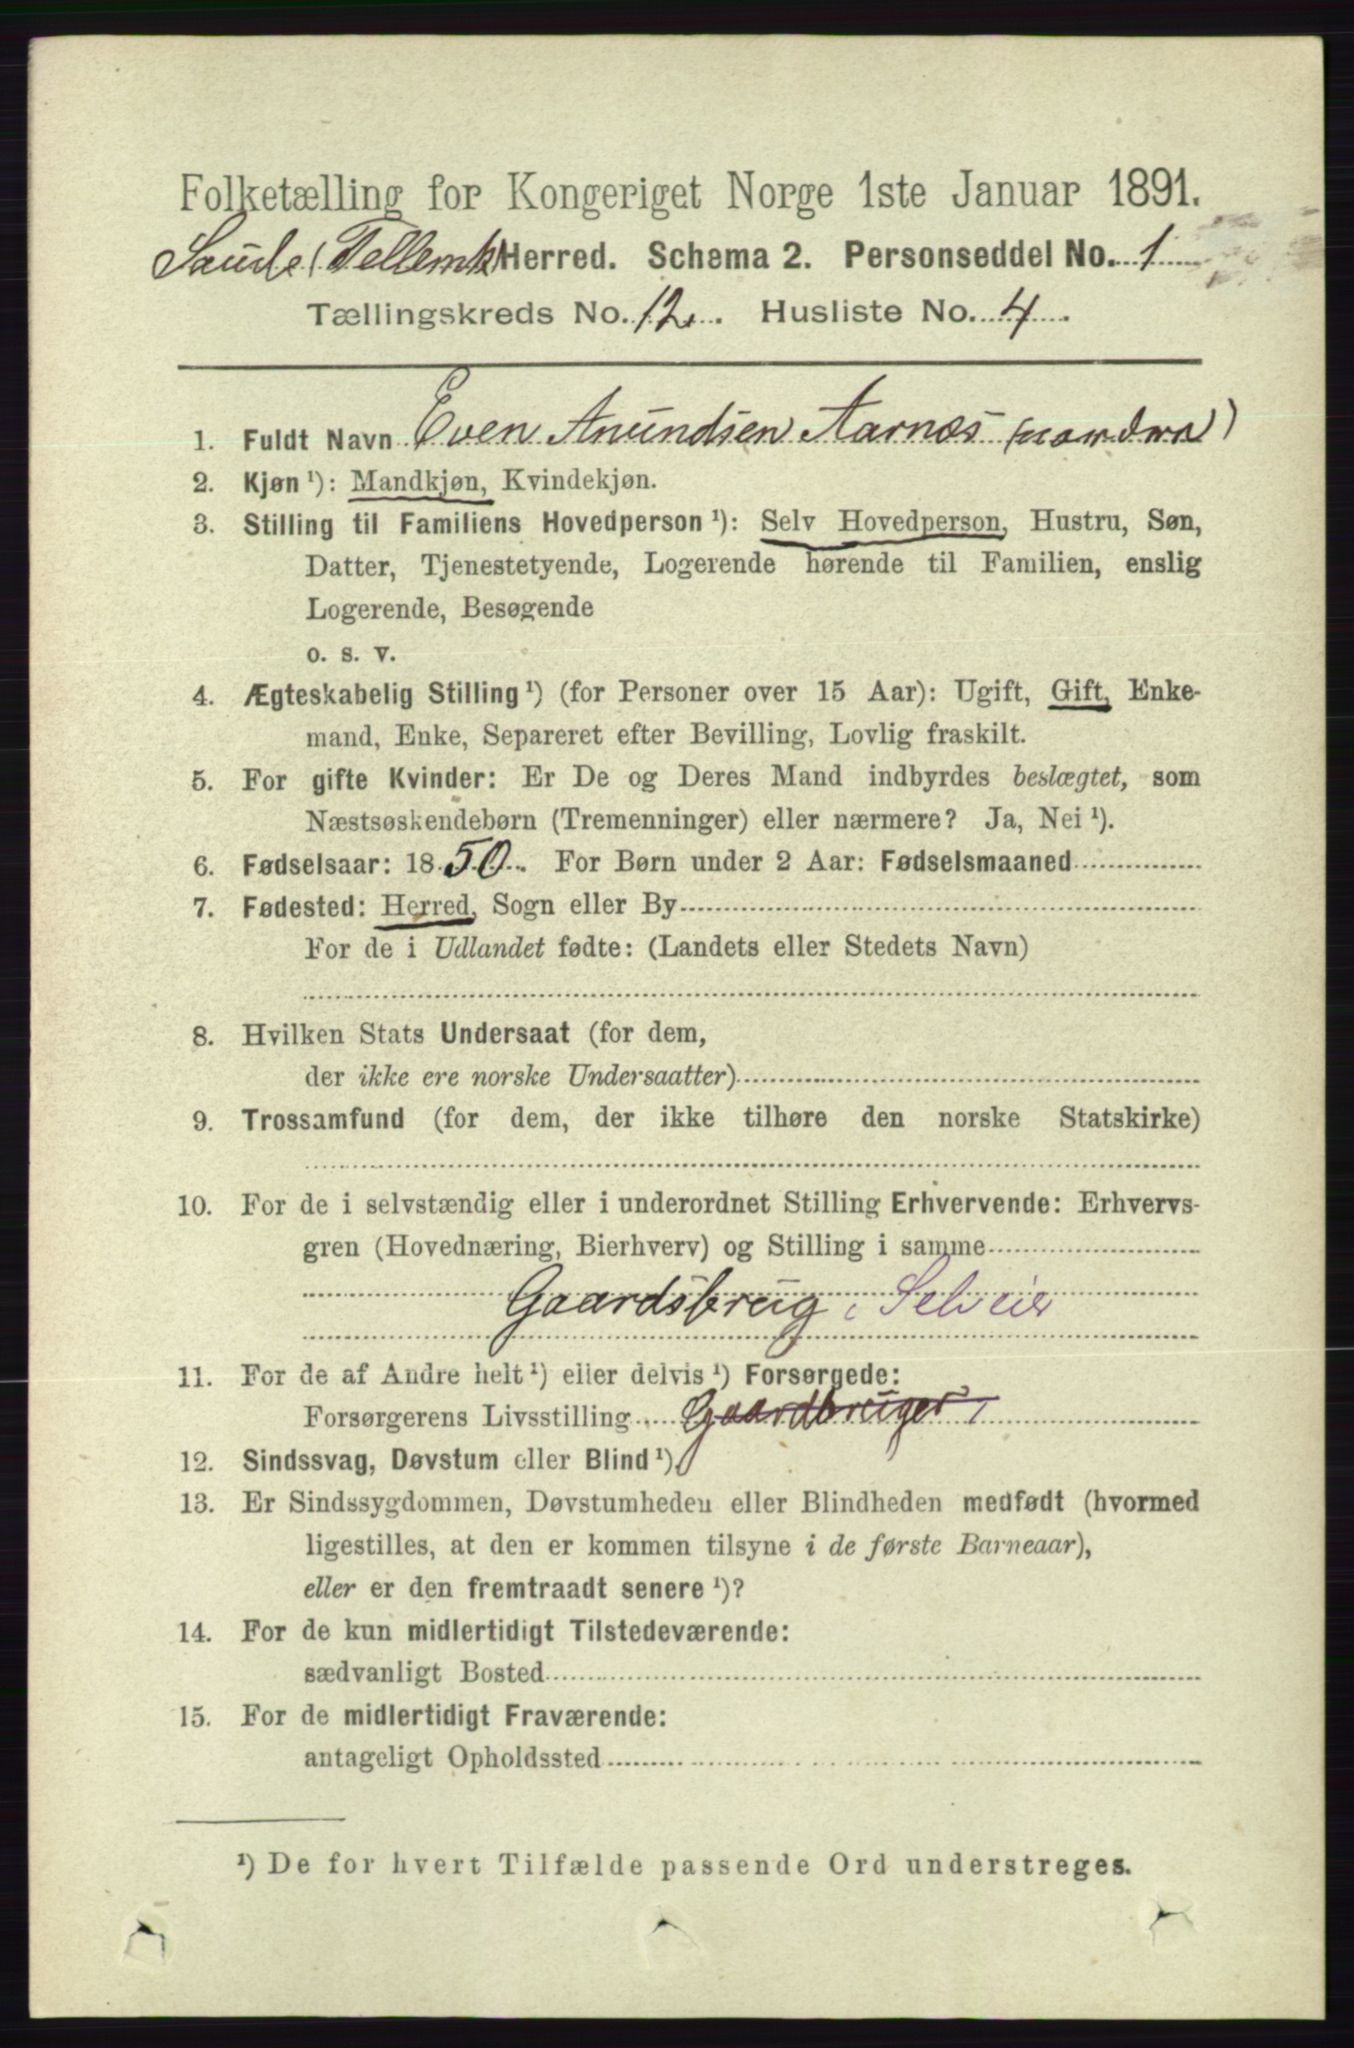 Folketælling for Kongeriget Norge 1ste Januar 1891.
Saude (Tellemk) Herred. Schema 2. Personseddel No. 1
Tællingskreds No. 12. Husliste No. 4.
1. Fuldt Navn Even Anundsen Aarnæs (nordre)
2. Kjøn ¹): Mandkjøn, Kvindekjøn.
3. Stilling til Familiens Hovedperson ¹): Selv Hovedperson, Hustru, Søn,
Datter, Tjenestetyende, Logerende hørende til Familien, enslig
Logerende, Besøgende
o. s. v.
4. Ægteskabelig Stilling ¹) (for Personer over 15 Aar): Ugift, Gift, Enke-
mand, Enke, Separeret efter Bevilling, Lovlig fraskilt.
5. For gifte Kvinder: Er De og Deres Mand indbyrdes beslægtet, som
Næstsøskendebørn (Tremenninger) eller nærmere? Ja, Nei ¹).
6. Fødselsaar: 1850. For Børn under 2 Aar: Fødselsmaaned
7. Fødested: Herred, Sogn eller By
For de i Udlandet fødte: (Landets eller Stedets Navn)
8. Hvilken Stats Undersaat (for dem,
der ikke ere norske Undersaatter)
9. Trossamfund (for dem, der ikke tilhøre den norske Statskirke)
10. For de i selvstændig eller i underordnet Stilling Erhvervende: Erhvervs-
gren (Hovednæring, Bierhverv) og Stilling i samme
Gaardsbrug, Selveier
11. For de af Andre helt ¹) eller delvis ¹) Forsørgede:
Forsørgerens Livsstilling Gaardbruger
12. Sindssvag, Døvstum eller Blind ¹).
13. Er Sindssygdommen, Døvstumheden eller Blindheden medfødt (hvormed
ligestilles, at den er kommen tilsyne i de første Barneaar),
eller er den fremtraadt senere ¹)?
14. For de kun midlertidigt Tilstedeværende:
sædvanligt Bosted
15. For de midlertidigt Fraværende:
antageligt Opholdssted
¹) De for hvert Tilfælde passende Ord understreges.